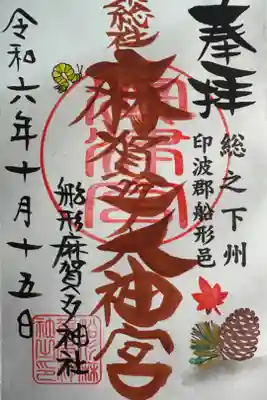 奉拝
総之下州
印波郡船形邑
総社
麻賀多大神宮
舩形麻賀多神社
令和六年十月十五日